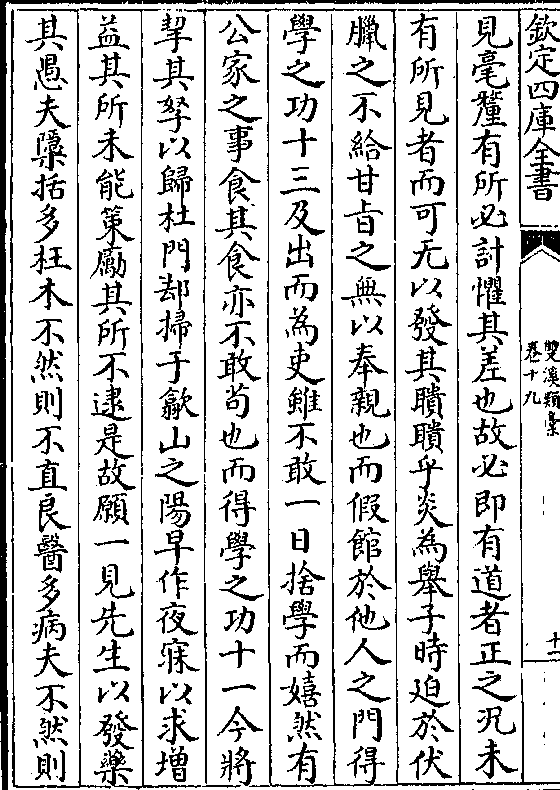 欽定四庫全書
雙溪類稾
卷十九
十一
見毫釐有所必計懼其差也故必即有道者正之况未
有所見者而可无以發其聵聵乎炎為舉子時迫於伏
臘之不給甘㫖之無以奉親也而假館於他人之門得
學之功十三及出而為吏雖不敢一日捨學而嬉然有
公家之事食其食亦不敢苟也而得學之功十一今將
挈其孥以歸杜門却掃于歙山之陽早作夜寐以求增
益其所未能策勵其所不逮是故願一見先生以發藥
其愚夫檃括多枉木不然則不直良醫多病夫不然則